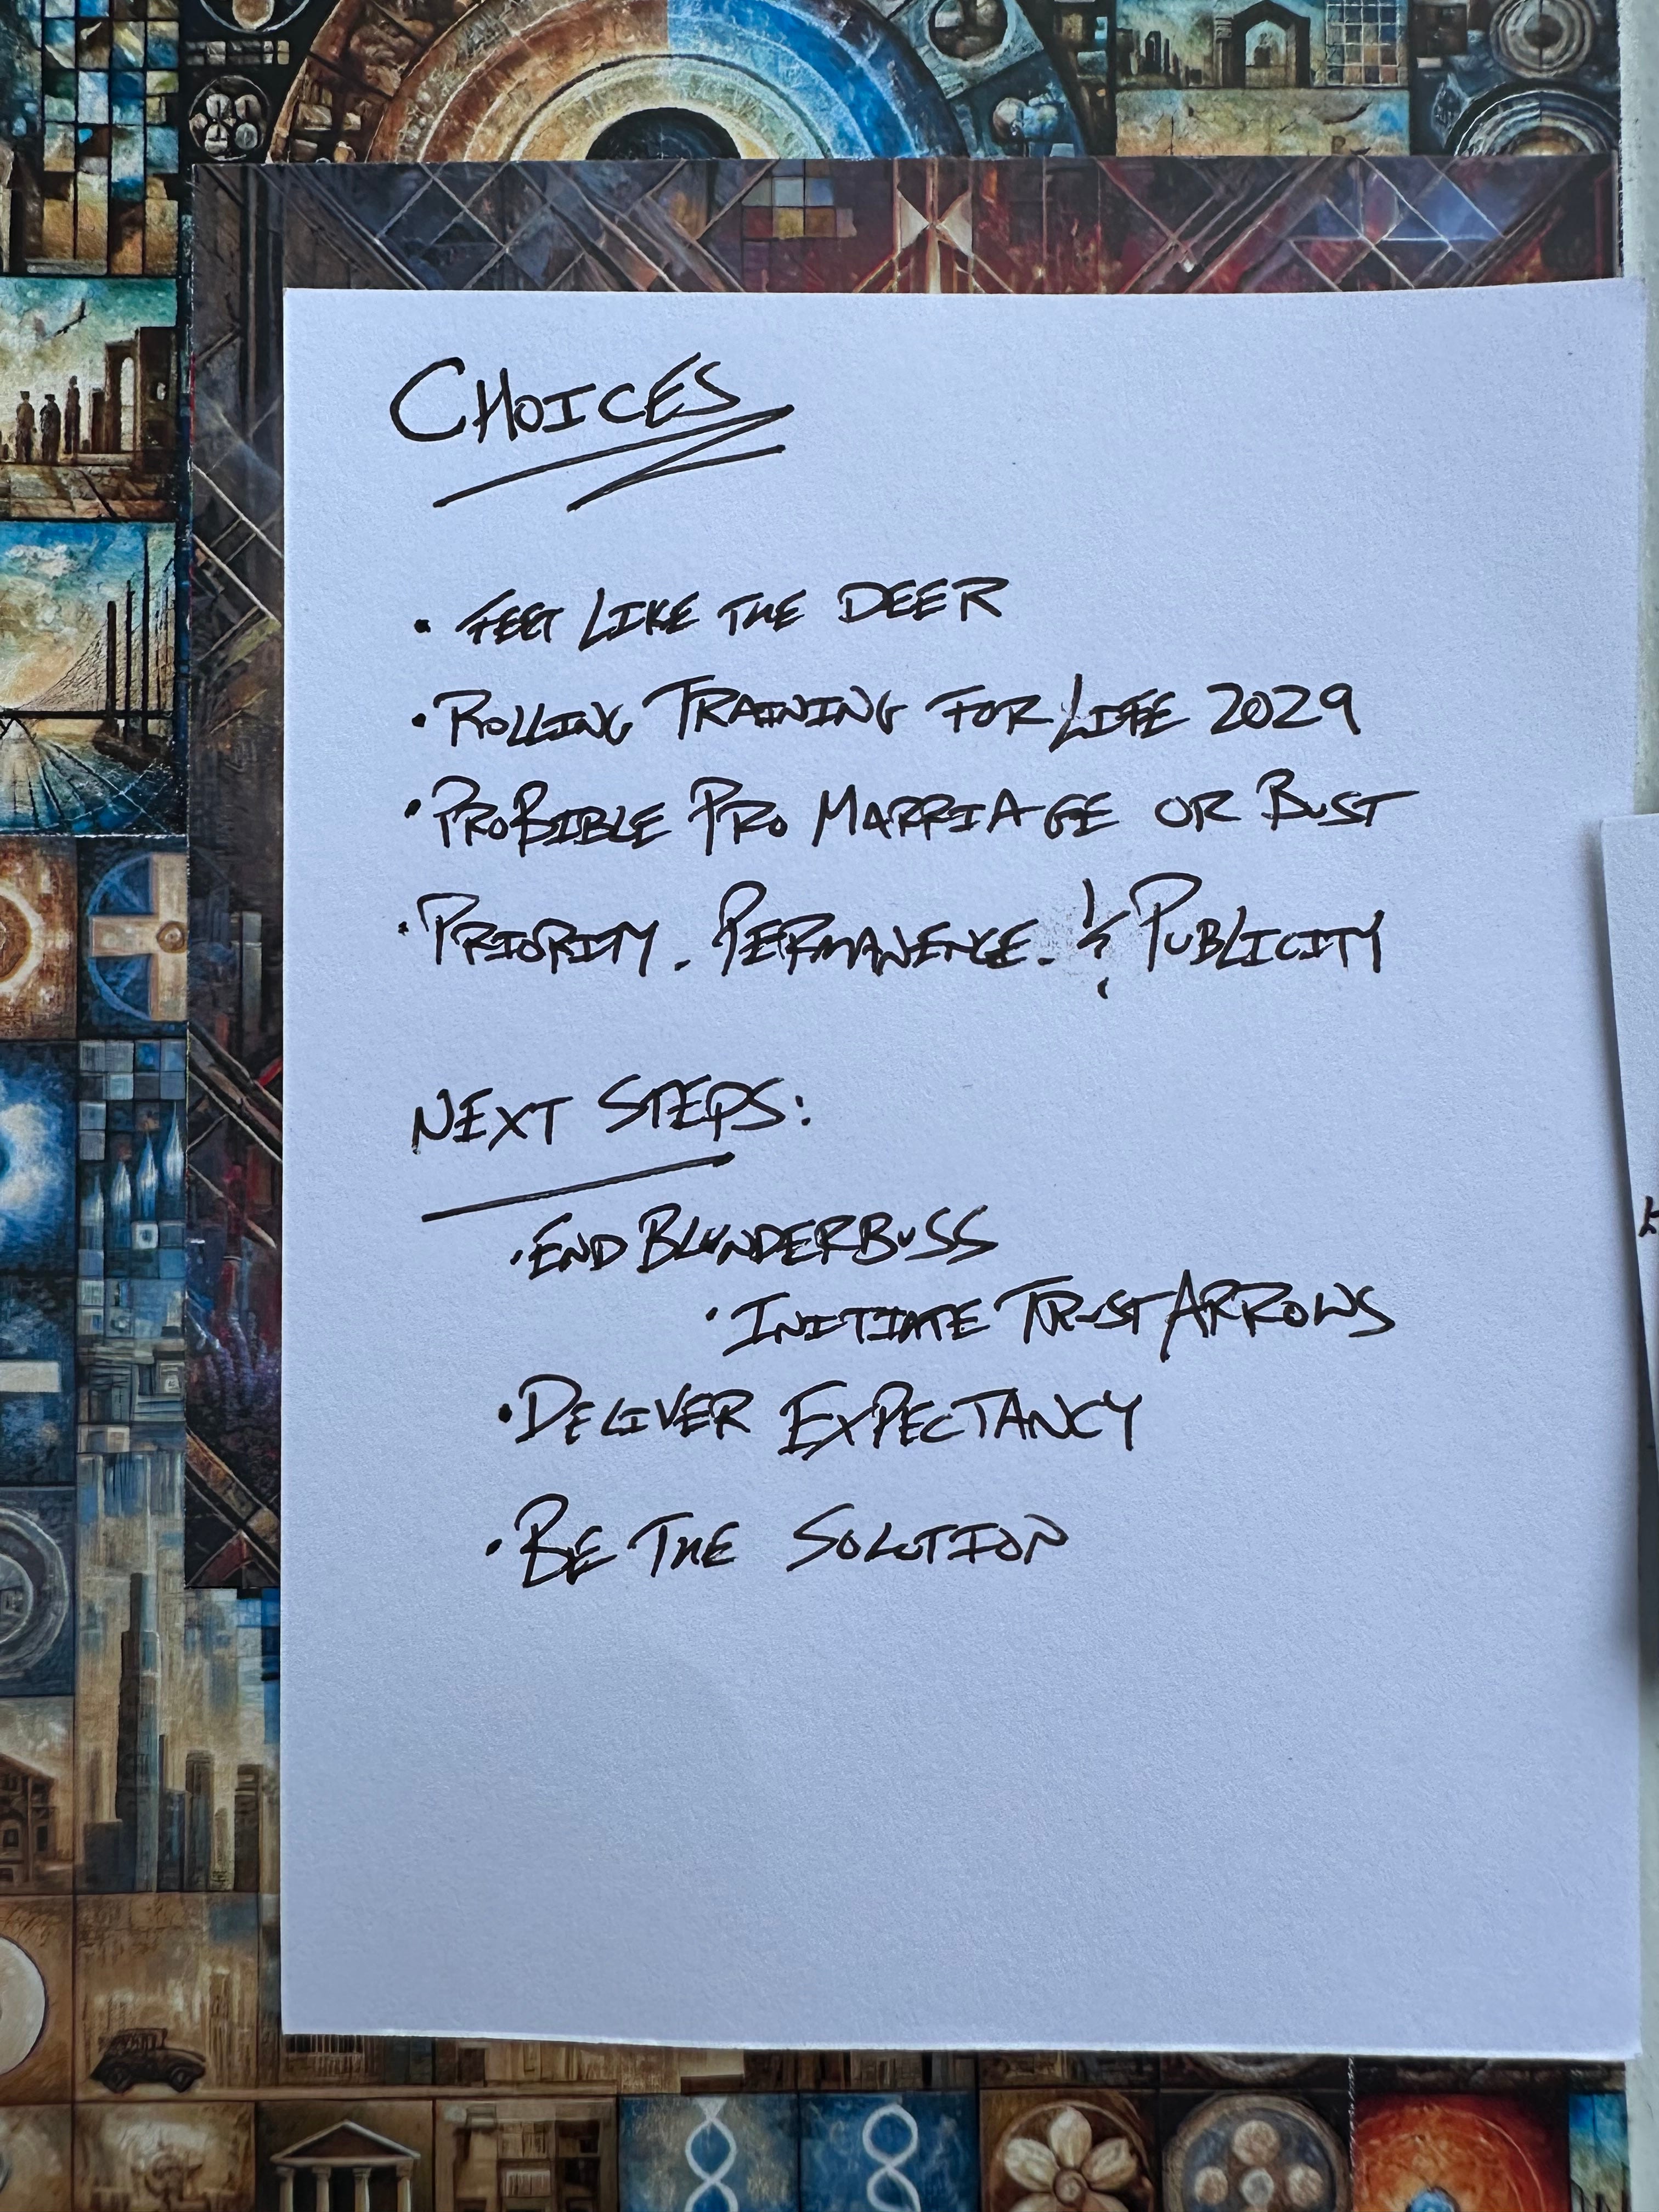 CHOICES
· FEET LIKE THE DEER
· ROLLING TRAINING FOR LIFE 2029
· PROBIBLE PRO MARRIAGE OR BUST
· PRIORITY. PERMANENCE. & PUBLICITY
NEXT STEPS:
· END BLUNDERBUSS
· INITIATE TRUST ARROWS
· DELIVER EXPECTANCY
· BE THE SOLUTION